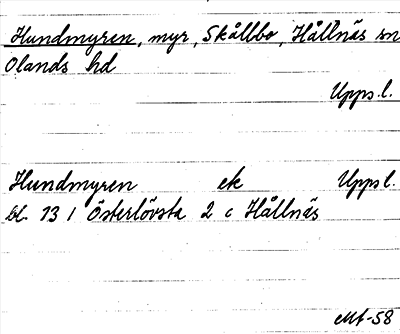 Hundmyren, myr, Skållbo, Hållnäs sn
Olands hd
Upps.l.
Hundmyren ek Uppsl.
bl. 13 I Österlövsta 2 c Hållnäs
-58